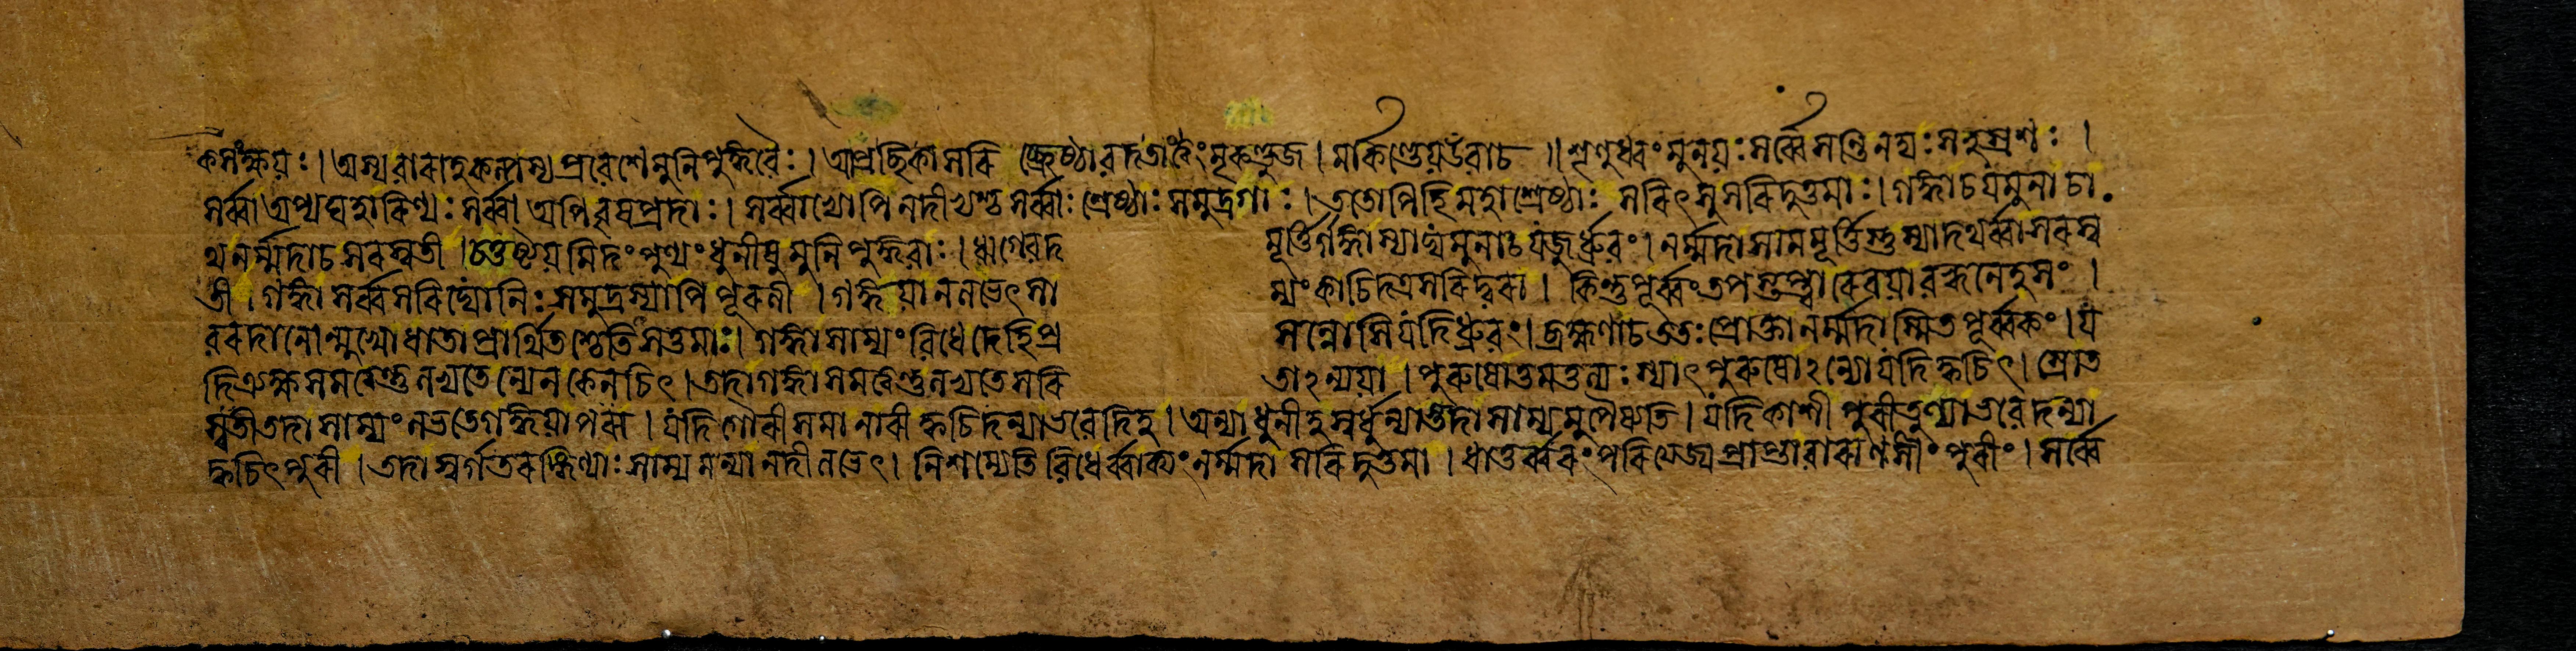 কসংক্ষয়ঃ। অস্যা রেবা তু কল্পস্য প্রবেশে মুনিপুঙ্গবৈঃ। আপৃচ্ছিকা সরি চ্ছ্রেষ্ঠা বদ তাবৎ মৃকণ্ডুজ। মার্কণ্ডেয় উবাচ॥ শৃণুধ্বং মুনয়ঃ সর্ব্বে সন্তি নদ্যঃ সহস্রশঃ।
সর্ব্বা অপ্যঘহারিণ্যঃ সর্ব্বা অপি বৃষপ্রদাঃ। সর্ব্বাভ্যোপি নদীভ্যস্তু সর্ব্বাঃ শ্রেষ্ঠাঃ সমুদ্রগাঃ। ততোপি হি মহাশ্রেষ্ঠাঃ সরিৎসু সরিদুত্তমাঃ। গঙ্গা চ যমুনা চা
থ নর্ম্মদা চ সরস্বতী। চতুষ্টয়মিদং পুণ্যং ধুনীষু মুনিপুঙ্গবাঃ। ঋগ্বেদ মূর্ত্তির্গঙ্গা স্যাদ্যমুনা চ যজুর্ধ্রুবং। নর্ম্মদা সামমূর্ত্তিস্তু স্যাদথর্ব্বা সরস্ব
তী। গঙ্গা সর্ব্বসরিদ্যোনিঃ সমুদ্রস্যাপি পূরণী। গঙ্গয়া ন লভেৎ সা ম্যং কাচিদত্র সরিদ্বরা। কিন্তু পূর্ব্বং তপস্তপ্ত্বা রেবয়া বহ্বনেহসং।
বরদানোন্মুখো ধাতা প্রার্থিতশ্চেতি সত্তমাঃ। গঙ্গাসাম্যং বিধে দেহি প্র সন্নোসি যদি ধ্রুবং। ব্রহ্মণা চ ততঃ প্রোক্তা নর্ম্মদা স্মিতপূর্ব্বকং। য
দি ত্র্যক্ষসমত্বন্তু লভ্যতেন্যেন কেনচিৎ। তদা গঙ্গাসমত্বন্তু লভ্যতে সরি তাঽন্যয়া। পুরুষোত্তমতুল্যঃ স্যাৎ পুরুষোঽন্যো যদি ক্বচিৎ। স্রোত
স্বতী তদা সাম্যং লভতে গঙ্গয়াপরা। যদি গৌরীসমা নারী ক্বচিদন্যা ভবেদিহ। অন্যা ধুনীহ স্বর্ধুন্যাস্তদা সাম্যমুপৈষ্যতি। যদি কাশীপুরীতুল্যা ভবেদন্যা
ক্বচিৎ পুরী। তদা স্বর্গতরঙ্গিণ্যাঃ সাম্যমন্যা নদী লভেৎ। নিশম্যেতি বিধের্ব্বাক্যং নর্ম্মদা সরিদুত্তমা। ধাতুর্ব্বরং পরিত্যজ্য প্রাপ্তা বারাণসীং পুরীং। সর্ব্বে